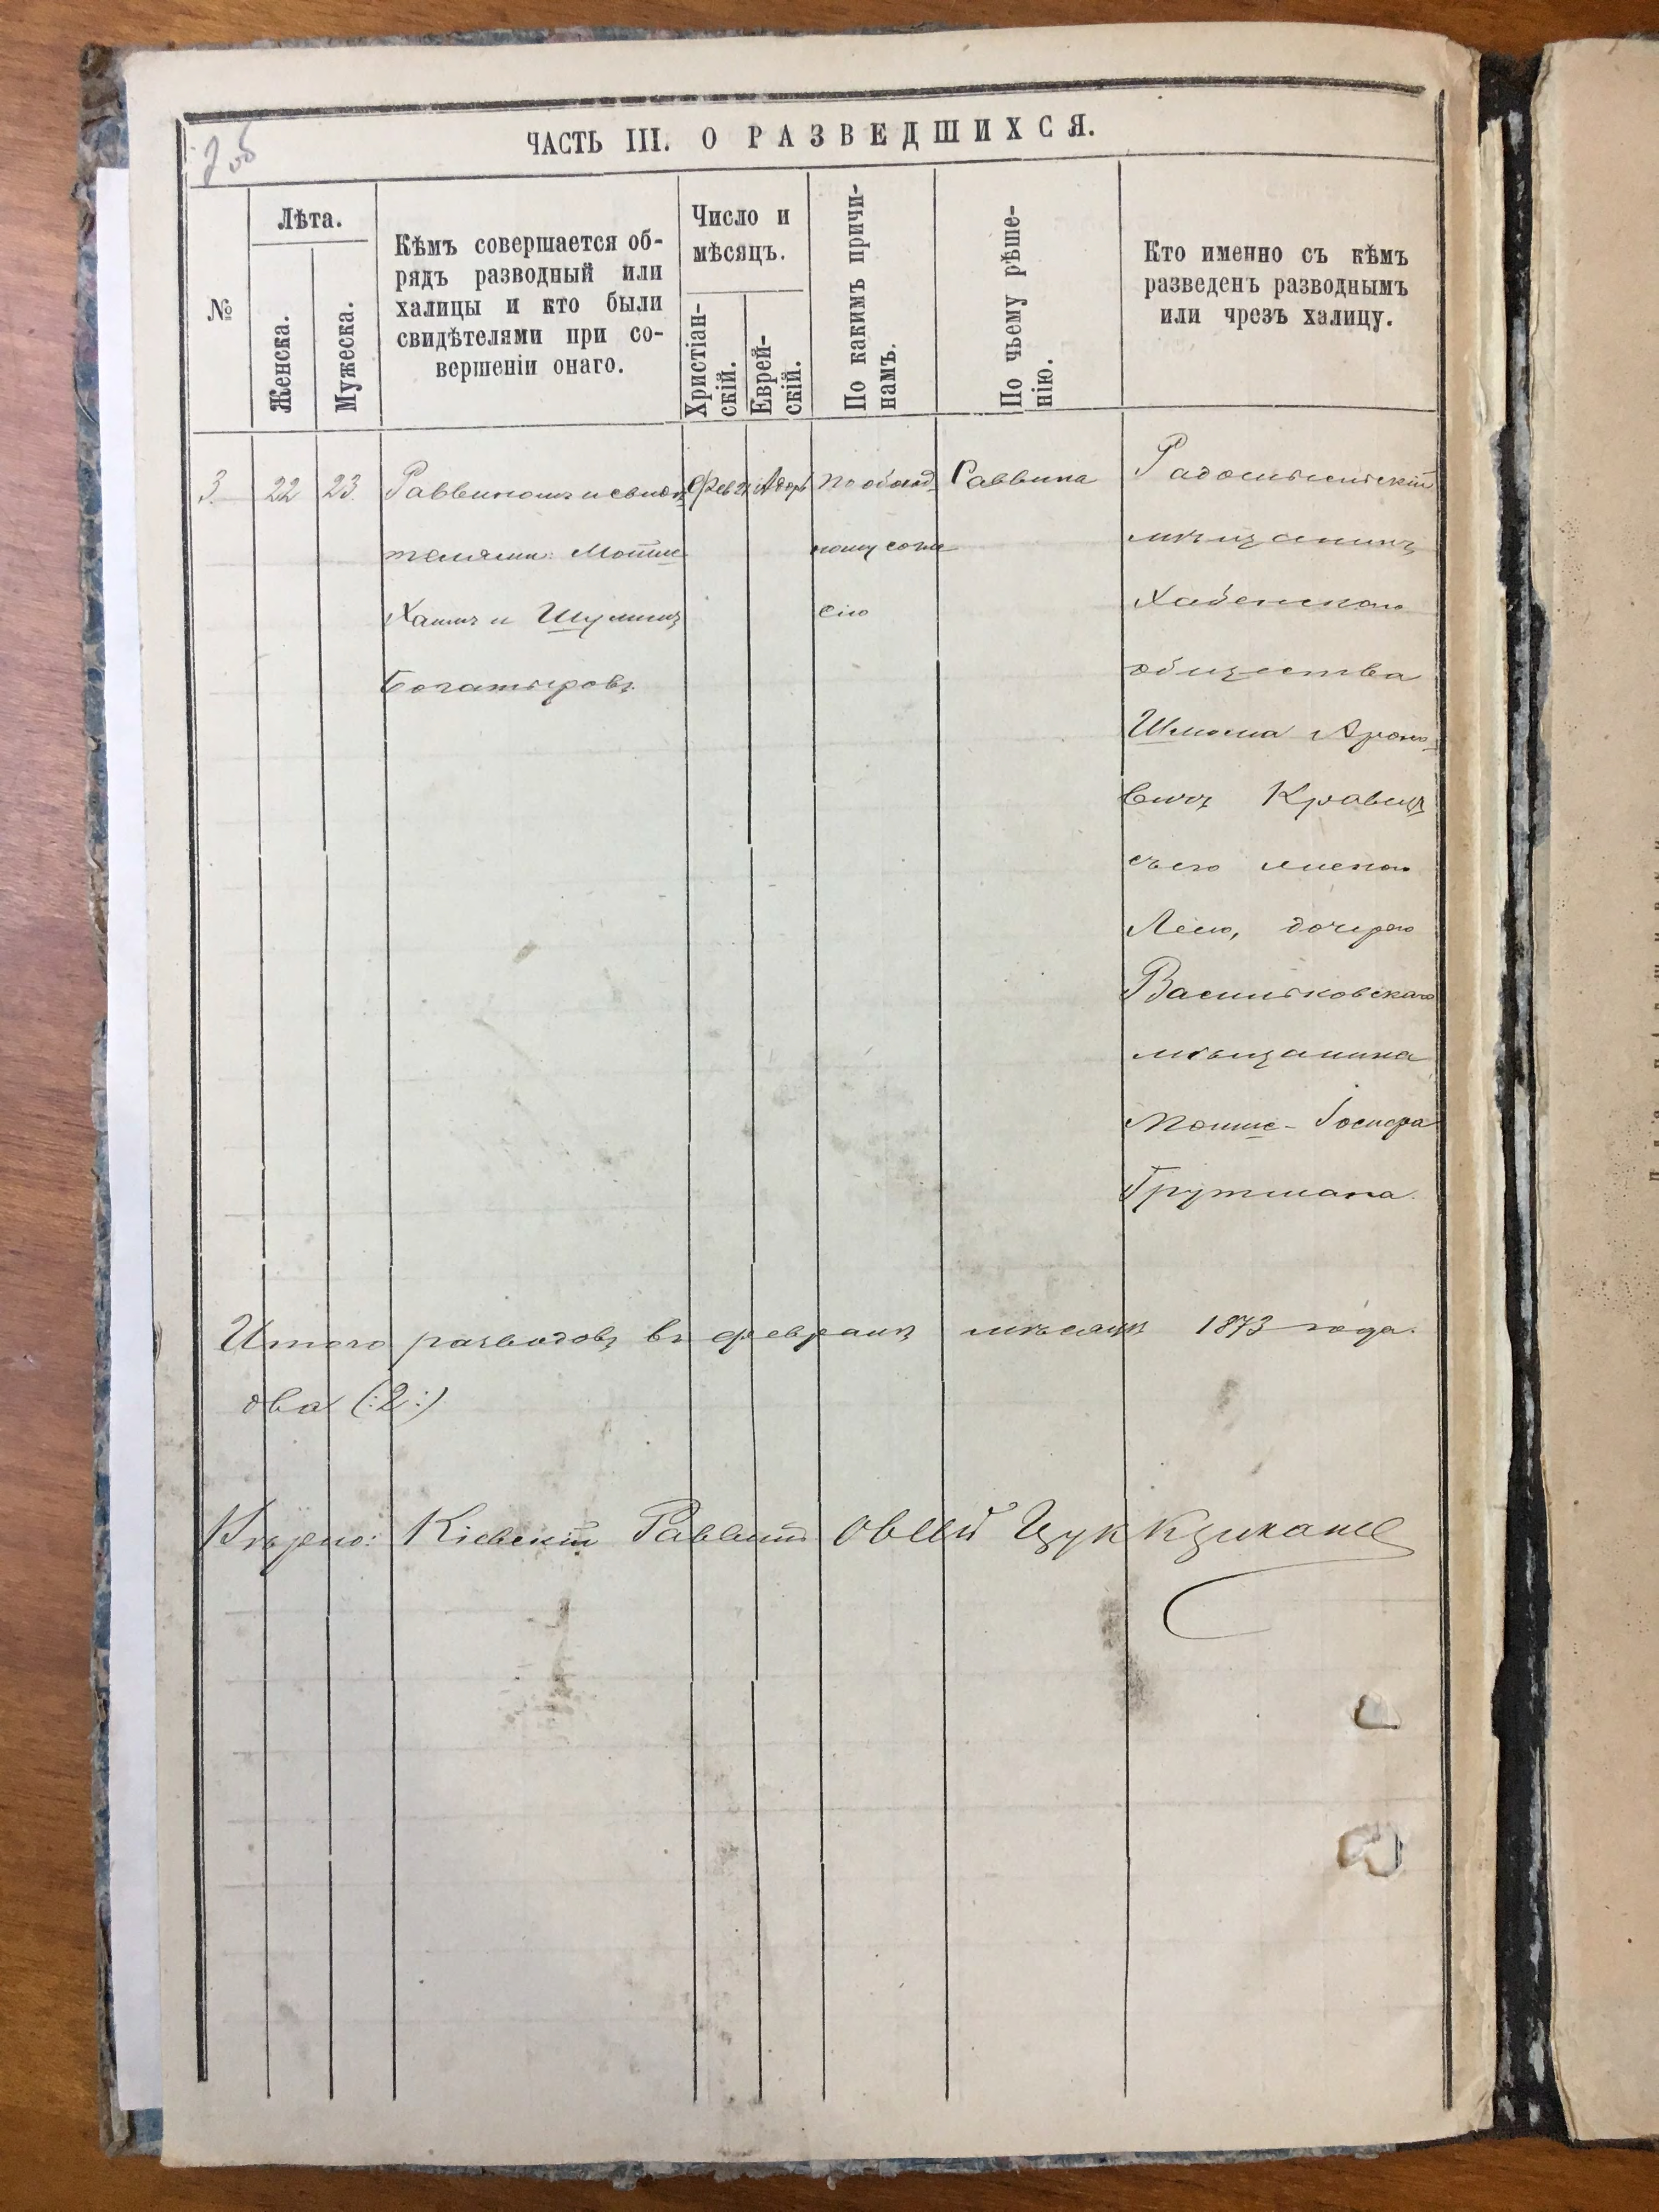 ЧАСТЬ III. О РАЗВЕДШИХСЯ.
№
Лѣта.
Женска.
Мужеска.
Кѣмъ совершается об-
рядъ разводный или
халицы и кто были
свидѣтелями при со-
вершеніи онаго.
Число и
мѣсяцъ.
Христіан-
скій.
Еврей-
скій.
По какимъ причи-
намъ.
По чьему рѣше-
нію.
Кто именно съ кѣмъ
разведенъ разводнымъ
или чрезъ халицу.
3. 22 23.
Раввиномъ и свидѣ
телями: Мошко
Хаимъ и Шулимъ
Богатыровъ.
Фев
Адаръ
По обоюд
ному согла
сію
Раввина
Радомысльскій
мѣщанинъ
Хабенскаго
общества
Шлиома Ароно-
вичъ Кравецъ
съ его женою
Леею, дочерью
Васильковскаго
мѣщанина
Мошко-Іосифа
Грутмана.
Итого разводовъ въ февралѣ мѣсяцѣ 1873 года.
два (:2:)
Вѣрно: Кіевскій Раввинъ Овсей Цуккерманъ